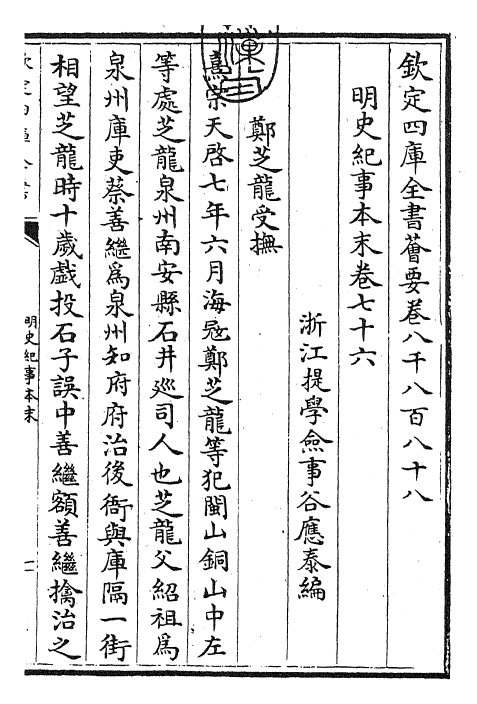 欽定四庫全書薈要卷八千八百八十八
明史紀事本末卷七十六
浙江提學僉事谷應泰編
鄭芝龍受撫
熹宗天啓七年六月海𡨥鄭芝龍等犯閩山銅山中左
等處芝龍泉州南安縣石井廵司人也芝龍父紹祖為
泉州庫吏蔡善繼為泉州知府府治後衙與庫隔一街
相望芝龍時十歲戲投石子誤中善繼額善繼擒治之
明史紀事本末
一